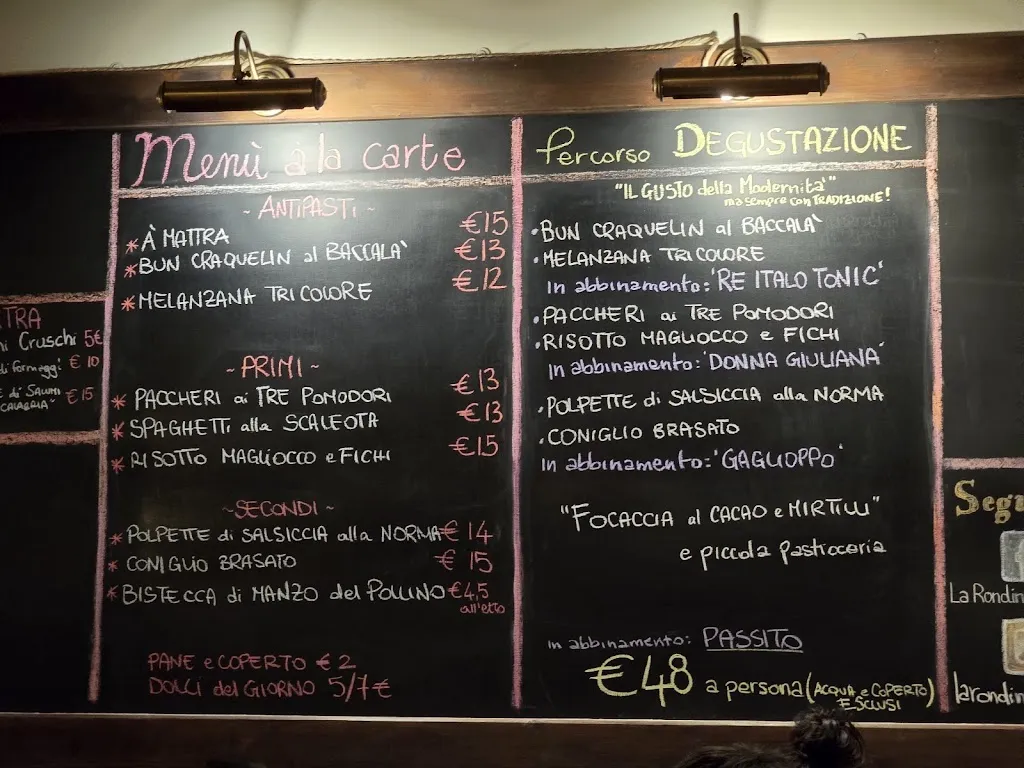 TRA
Cruschi 5€
di formaggi € 10
di SALUMI € 15
CALABRIA"
Menù à la carte
~ ANTIPASTI ~
* À MATTRA €15
* BUN CRAQUELIN al BACCALA' €13
* MELANZANA TRICOLORE €12
~ PRIMI ~
* PACCHERI ai TRE POMODORI €13
* SPAGHETTI alla SCALEOTA €13
* RISOTTO MAGLIOCCO e FICHI €15
~ SECONDI ~
* POLPETTE di SALSICCIA alla NORMA € 14
* CONIGLIO BRASATO € 15
* BISTECCA di MANZO del POLLINO €4,5
all'etto
PANE e COPERTO € 2
DOLCI del GIORNO 5/7€
Percorso DEGUSTAZIONE
"IL GUSTO della Modernita'"
ma sempre con TRADIZIONE!
• BUN CRAQUELIN al BACCALA'
• MELANZANA TRICOLORE
in abbinamento: 'RE ITALO TONIC'
• PACCHERI ai TRE POMODORI
• RISOTTO MAGLIOCCO e FICHI
in abbinamento: 'DONNA GIULIANA'
• POLPETTE di SALSICCIA alla NORMA
• CONIGLIO BRASATO
in abbinamento: 'GAGLIOPPO'
"FOCACCIA al CACAO e MIRTILLI"
e piccola pasticceria
in abbinamento: PASSITO
€48 a persona (ACQUA e COPERTO)
ESCLUSI
Segu
La Rondin
larondin